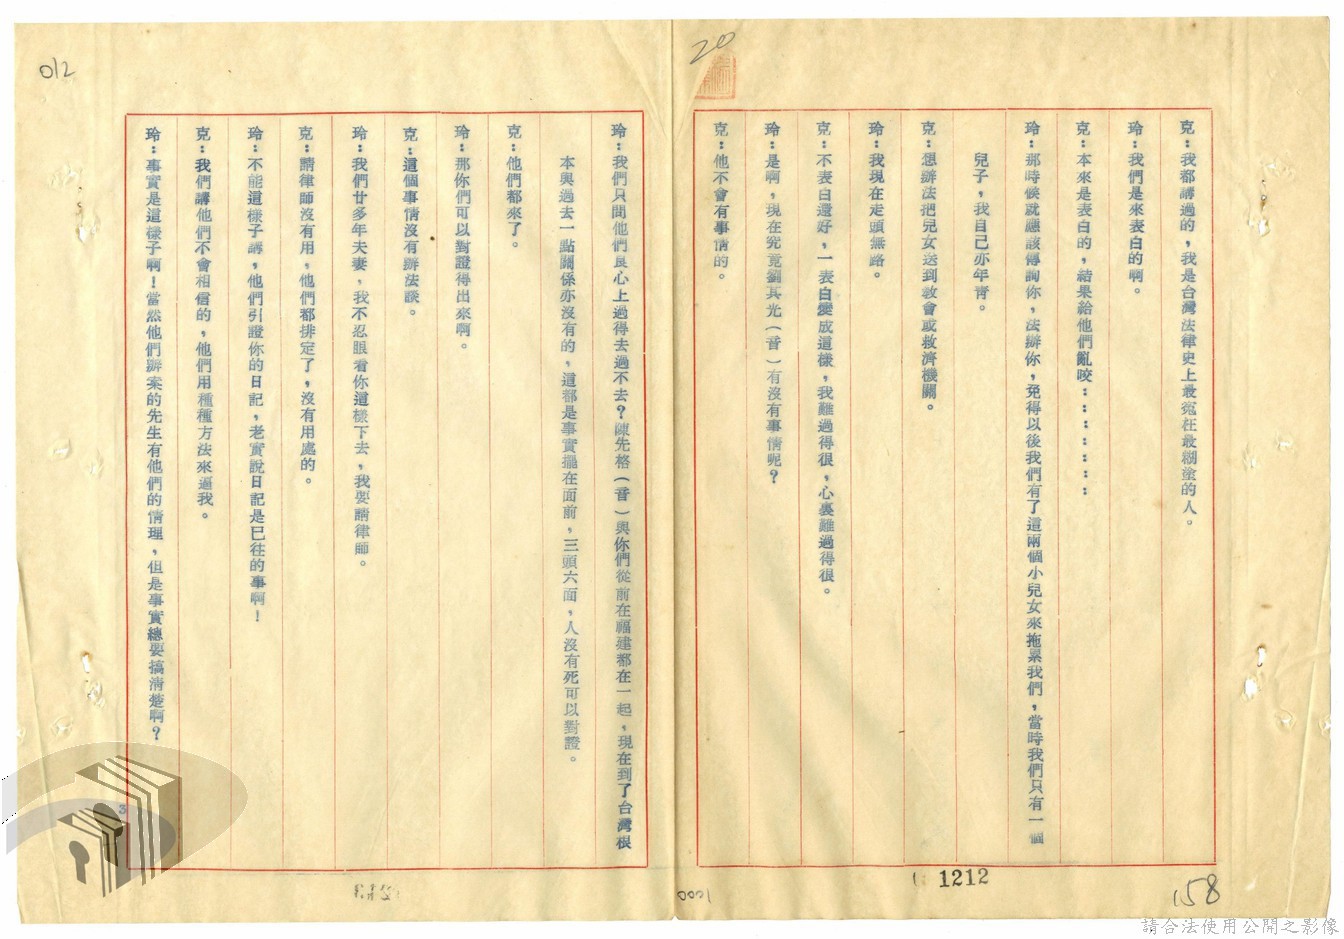 20
克：我都講過的，我是台灣法律史上最冤枉最糊塗的人。
玲：我們是來表白的啊。
克：本來是表白的，結果給他們亂咬：：：：：：
玲：那時候就應該傳詢你，法辦你，免得以後我們有了這兩個小兒女來拖累我們，當時我們只有一個
兒子，我自己亦年青。
克：想辦法把兒女送到教會或救濟機關。
玲：我現在走頭無路。
克：不表白還好，一表白變成這樣，我難過得很，心裏難過得很。
玲：是啊，現在究竟劉其光（音）有沒有事情呢？
克：他不會有事情的。
1212
158
012
玲：我們只問他們良心上過得去過不去？陳先格（音）與你們從前在福建都在一起，現在到了台灣根
本與過去一點關係亦沒有的，這都是事實擺在面前，三頭六面，人沒有死可以對證。
克：他們都來了。
玲：那你們可以對證得出來啊。
克：這個事情沒有辦法談。
玲：我們廿多年夫妻，我不忍眼看你這樣下去，我要請律師。
克：請律師沒有用，他們都排定了，沒有用處的。
玲：不能這樣子講，他們引證你的日記，老實說日記是已往的事啊！
克：我們講他們不會相信的，他們用種種方法來逼我。
玲：事實是這樣子啊！當然他們辦案的先生有他們的情理，但是事實總要搞清楚啊？
3
請合法使用公開之影像